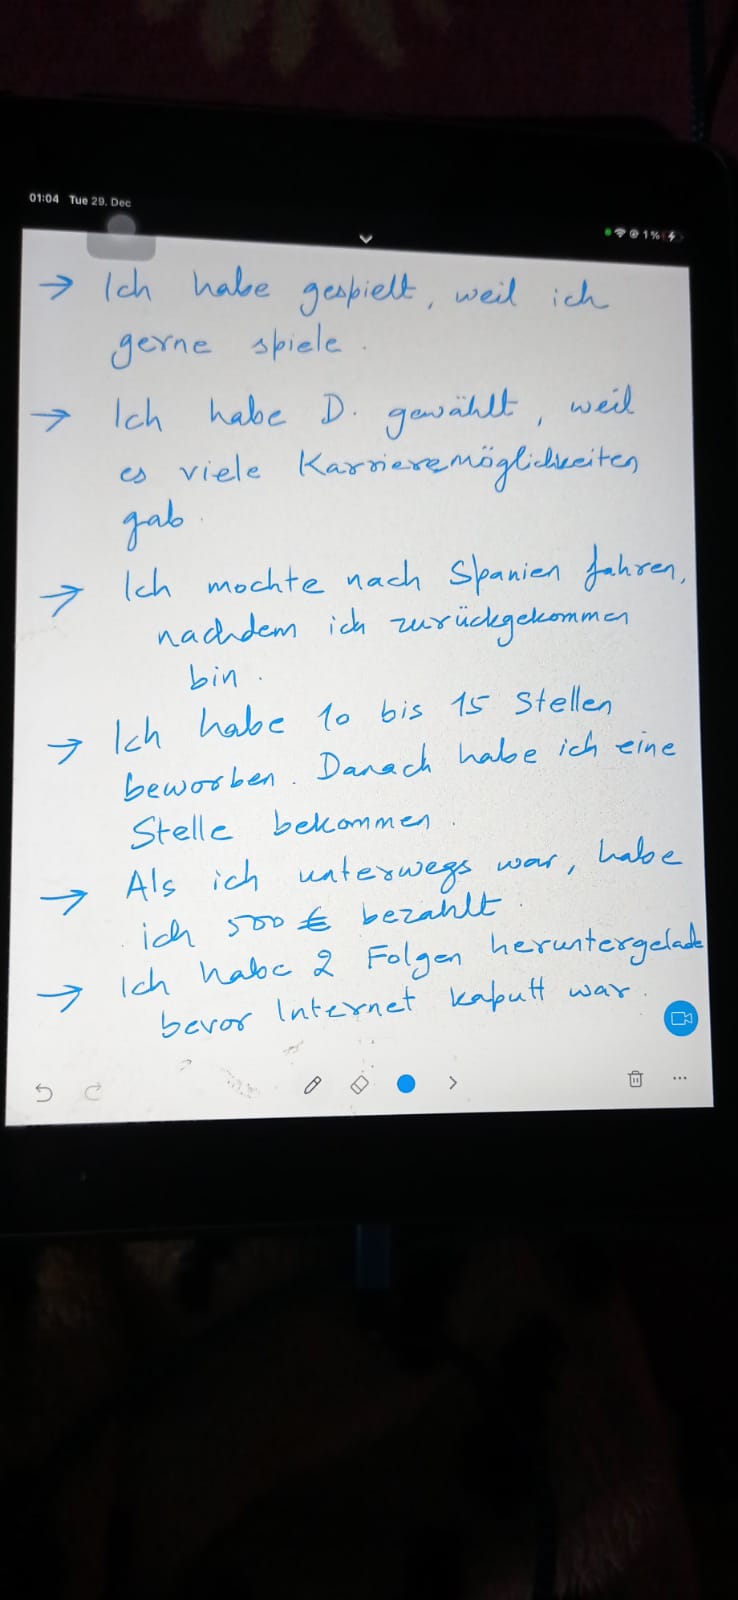 01:04 Tue 29. Dec
1%
→ Ich habe gespielt, weil ich
gerne spiele.
→ Ich habe D. gewählt, weil
es viele Karrieremöglichkeiten
gab.
→ Ich mochte nach Spanien fahren,
nachdem ich zurückgekommen
bin.
→ Ich habe 10 bis 15 Stellen
beworben. Danach habe ich eine
Stelle bekommen.
→ Als ich unterwegs war, habe
ich 500 € bezahlt.
→ Ich habe 2 Folgen heruntergelade
bevor Internet kaputt war.